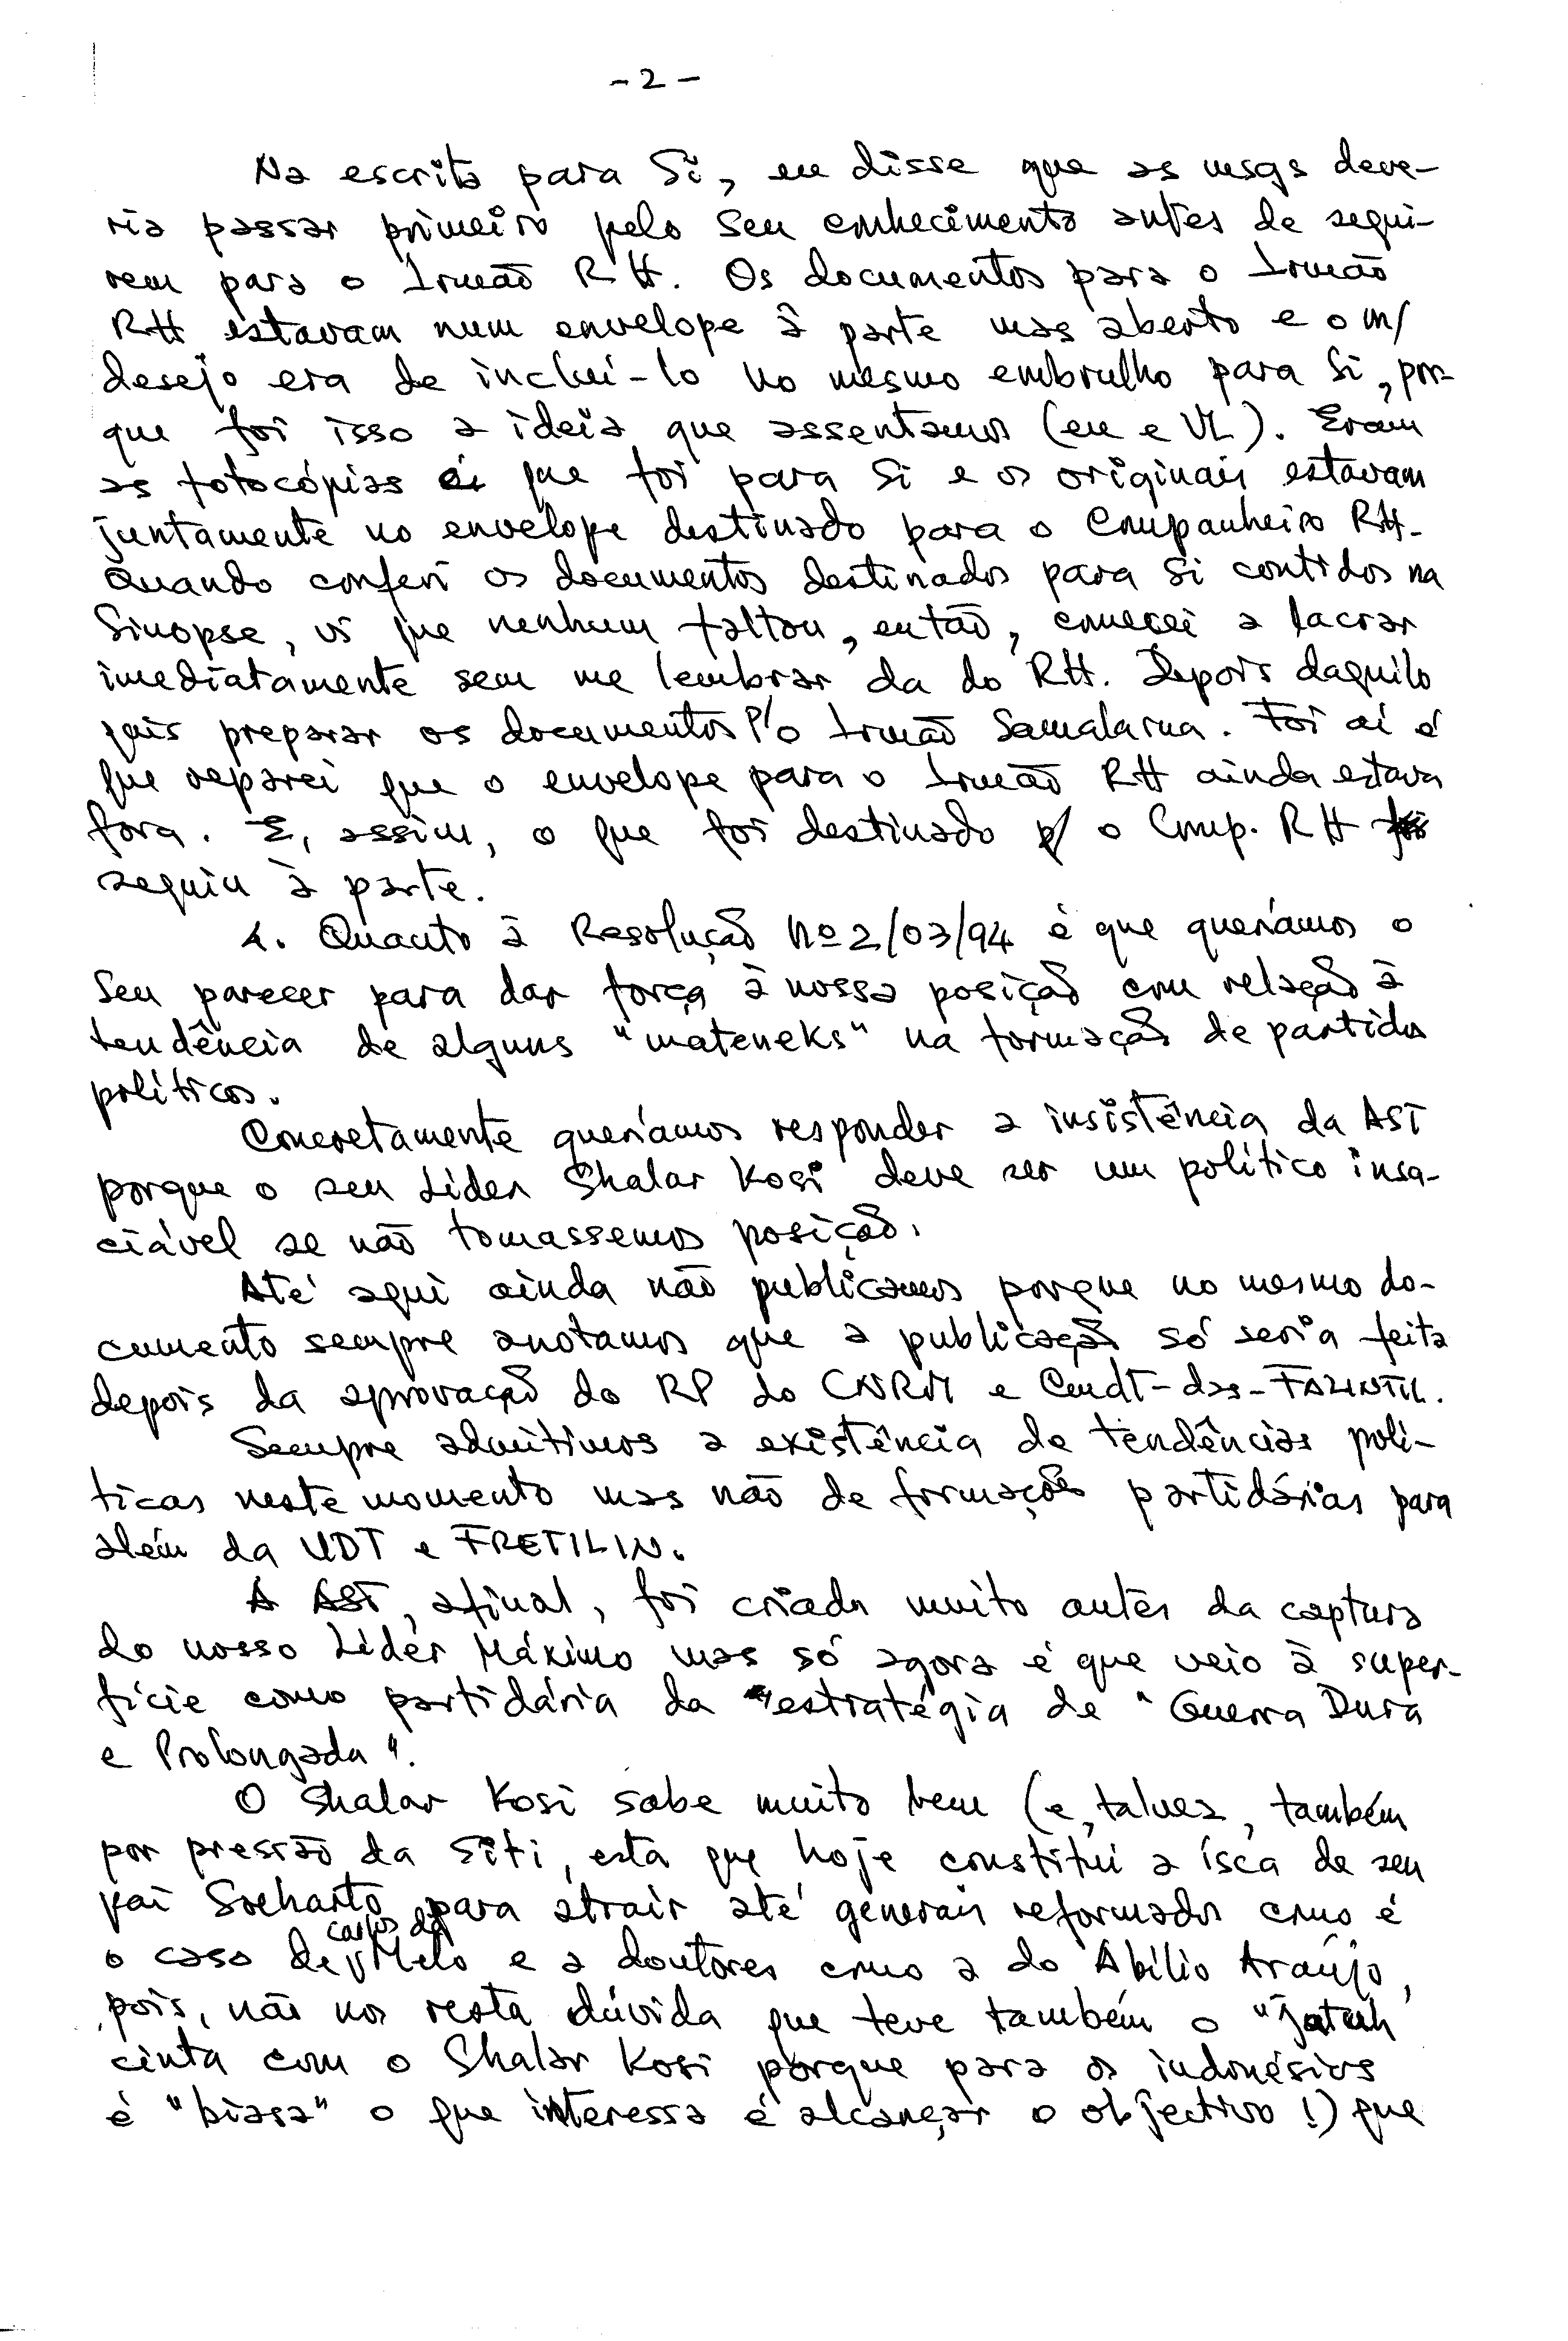 - 2 -
Na escrita para Si, eu disse que as msgs deve-
ria passar primeiro pelo Seu conhecimento antes de segui-
rem para o Irmão RH. Os documentos para o Irmão
RH estavam num envelope à parte mas aberto e o m/
desejo era de incluí-lo no mesmo embrulho para Si, por-
que foi isso a ideia que assentamos (eu e VL). Eram
as fotocópias é que foi para Si e os originais estavam
juntamente no envelope destinado para o Companheiro RH.
Quando conferi os documentos destinados para Si contidos na
Sinopse, vi que nenhum faltou, então, comecei a lacrar
imediatamente sem me lembrar da do RH. Depois daquilo
quis preparar os documentos P/o Irmão Samalarua. Foi aí é
que reparei que o envelope para o Irmão RH ainda estava
fora. E, assim, o que foi destinado p/ o Comp. RH
seguiu à parte.
4. Quanto à Resolução Nº 2/03/94 é que queríamos o
Seu parecer para dar força à nossa posição com relação à
tendência de alguns "mateneks" na formação de partidos
políticos.
Concretamente queríamos responder a insistência da AST
porque o seu Líder Shalar Kosi deve ser um político insa-
ciável se não tomassemos posição.
Até aqui ainda não publicamos porque no mesmo do-
cumento sempre anotamos que a publicação só seria feita
depois da aprovação do RP do CNRM e Cmdt-das-FALINTIL.
Sempre admitimos a existência de tendências polí-
ticas neste momento mas não de formações partidárias para
além da UDT e FRETILIN.
A AST, afinal, foi criada muito antes da captura
do nosso Líder Máximo mas só agora é que veio à super-
fície como partidária da estratégia de "Guerra Dura
e Prolongada".
O Shalar Kosi sabe muito bem (e, talvez, também
por pressão da Siti, esta que hoje constitui a isca de seu
pai Soeharto para atrair até generais reformados como é
o caso de Carlos de Melo e a doutores como a do Abílio Araújo,
pois, não nos resta dúvida que teve também o "jatuh
cinta com o Shalar Kosi porque para os indonésios
é "biasa" o que interessa é alcançar o objectivo !) que